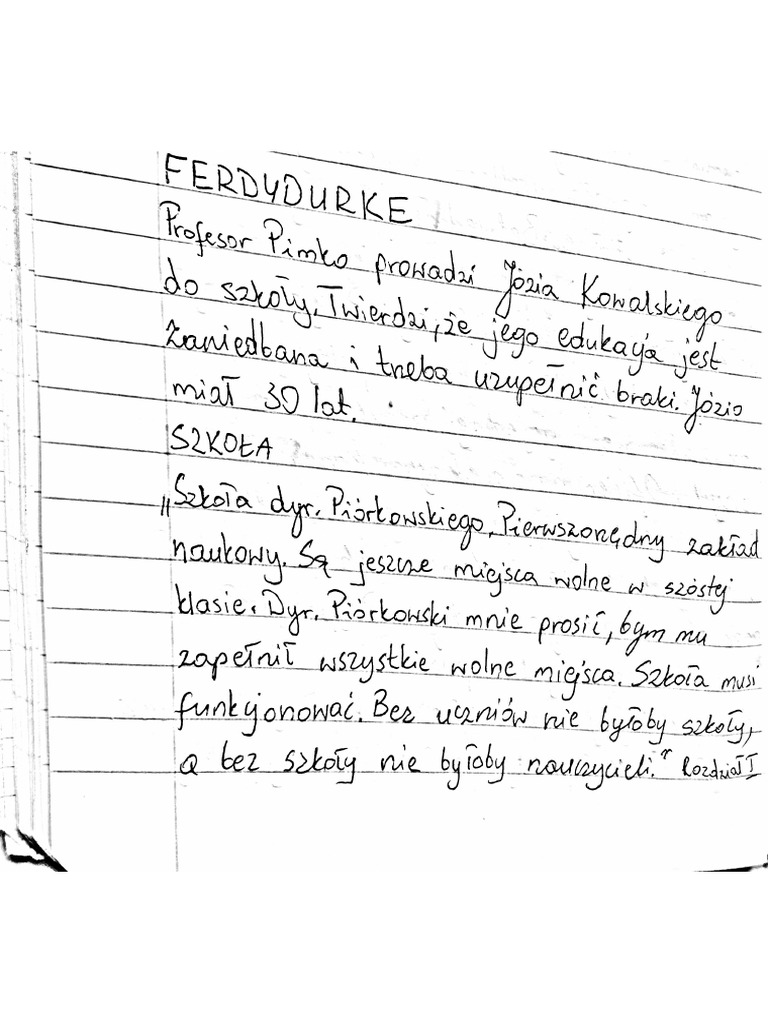 FERDYDURKE
Profesor Pimko prowadzi Józia Kowalskiego
do szkoły. Twierdzi, że jego edukacja jest
zaniedbana i trzeba uzupełnić braki. Józio
miał 30 lat.
SZKOŁA
„Szkoła dyr. Piórkowskiego. Pierwszorzędny zakład
naukowy. Są jeszcze miejsca wolne w szóstej
klasie. Dyr. Piórkowski mnie prosił, bym mu
zapełnił wszystkie wolne miejsca. Szkoła musi
funkcjonować. Bez uczniów nie byłoby szkoły,
a bez szkoły nie byłoby nauczycieli.” Rozdział I